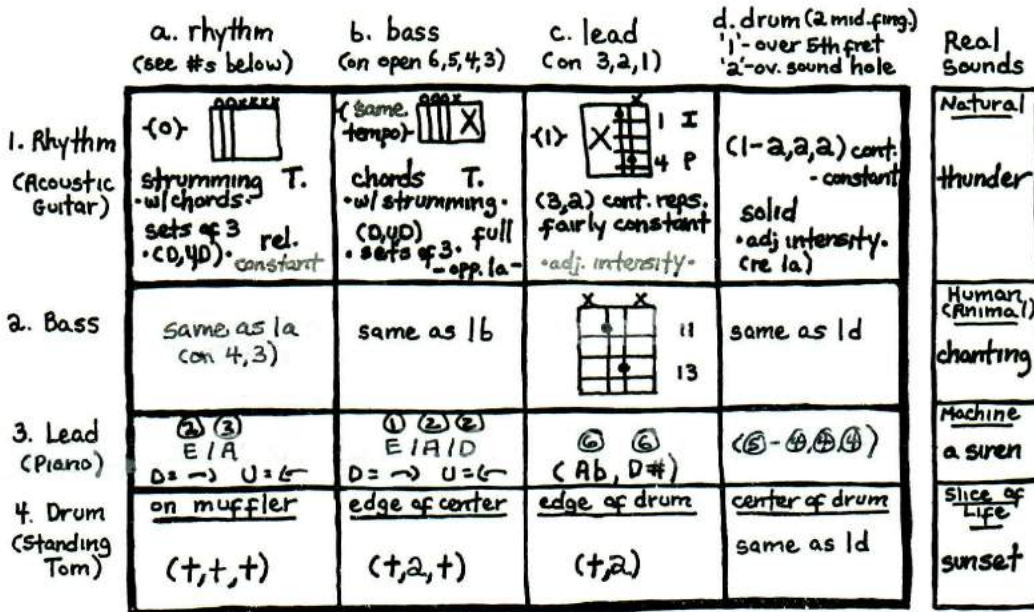 a. rhythm
(see #s below)
b. bass
(on open 6,5,4,3)
c. lead
(on 3,2,1)
d. drum (2 mid. fing.)
'1'- over 5th fret
'2'-ov. sound hole
Real
Sounds
1. Rhythm
(Acoustic
Guitar)
ooxxxx
-(0)-
strumming T.
•w/chords•
sets of 3
•(D,UD)• rel.
constant
ooox
-(same
tempo)-
X
chords T.
•w/strumming•
(D,UD) full
•sets of 3•
-opp. 1a-
x
-(1)-
X
1 I
4 P
(3,2) cont. reps.
fairly constant
•adj. intensity•
(1-2,2,2) cont.
-constant
solid
•adj intensity•
(re 1a)
Natural
thunder
2. Bass
same as 1a
(on 4,3)
same as 1b
x x
11
13
same as 1d
Human
(Animal)
chanting
3. Lead
(Piano)
2 3
E/A
D= → U= ←
1 2 2
E/A/D
D= → U= ←
6 6
(Ab, D#)
(5 - 4,4,4)
Machine
a siren
4. Drum
(Standing
Tom)
on muffler
(t,t,t)
edge of center
(t,2,t)
edge of drum
(t,2)
center of drum
same as 1d
Slice of
Life
sunset